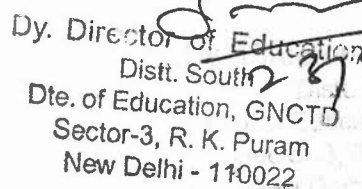 Dy. Director of Education
Distt. South
Dte. of Education, GNCTD
Sector-3, R. K. Puram
New Delhi - 110022